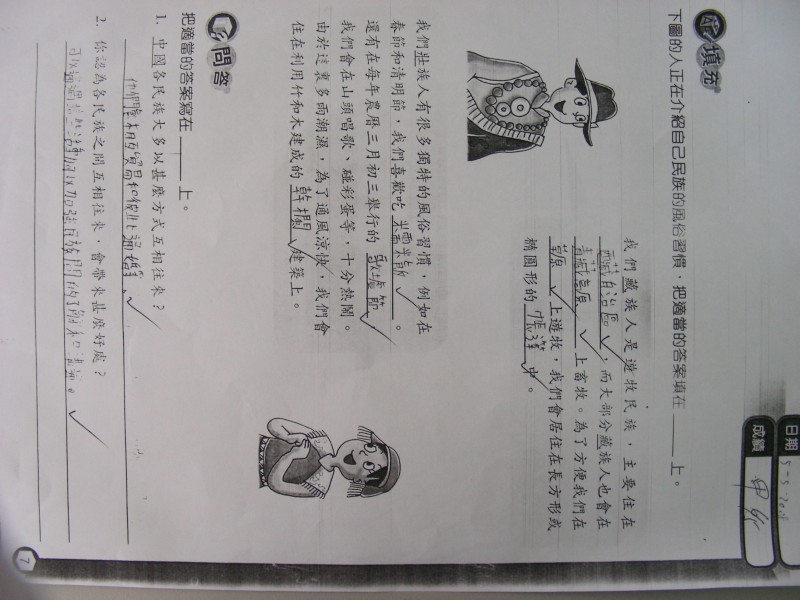 日期
5-5-2014
成績
甲
填充
下圖的人正在介紹自己民族的風俗習慣，把適當的答案填在______上。
我們藏族人是遊牧民族，主要住在
西藏自治區，而大部分藏族人也會在
青藏高原上畜牧。為了方便我們在
草原上遊牧，我們會居住在長方形或
橢圓形的帳篷中。
我們壯族人有很多獨特的風俗習慣，例如在
春節和清明節，我們喜歡吃。
還有在每年農曆三月初三舉行的歌墟節
我們會在山頭唱歌、碰彩蛋等，十分熱鬧。
由於這裏多雨潮濕，為了通風涼快，我們會
住在利用竹和木建成的干欄建築上。
問答
把適當的答案寫在______上。
1. 中國各民族大多以甚麼方式互相往來？
他們互相貿易和彼此通婚。
2. 你認為各民族之間互相往來，會帶來甚麼好處？
可以加強民族間的了解和
7